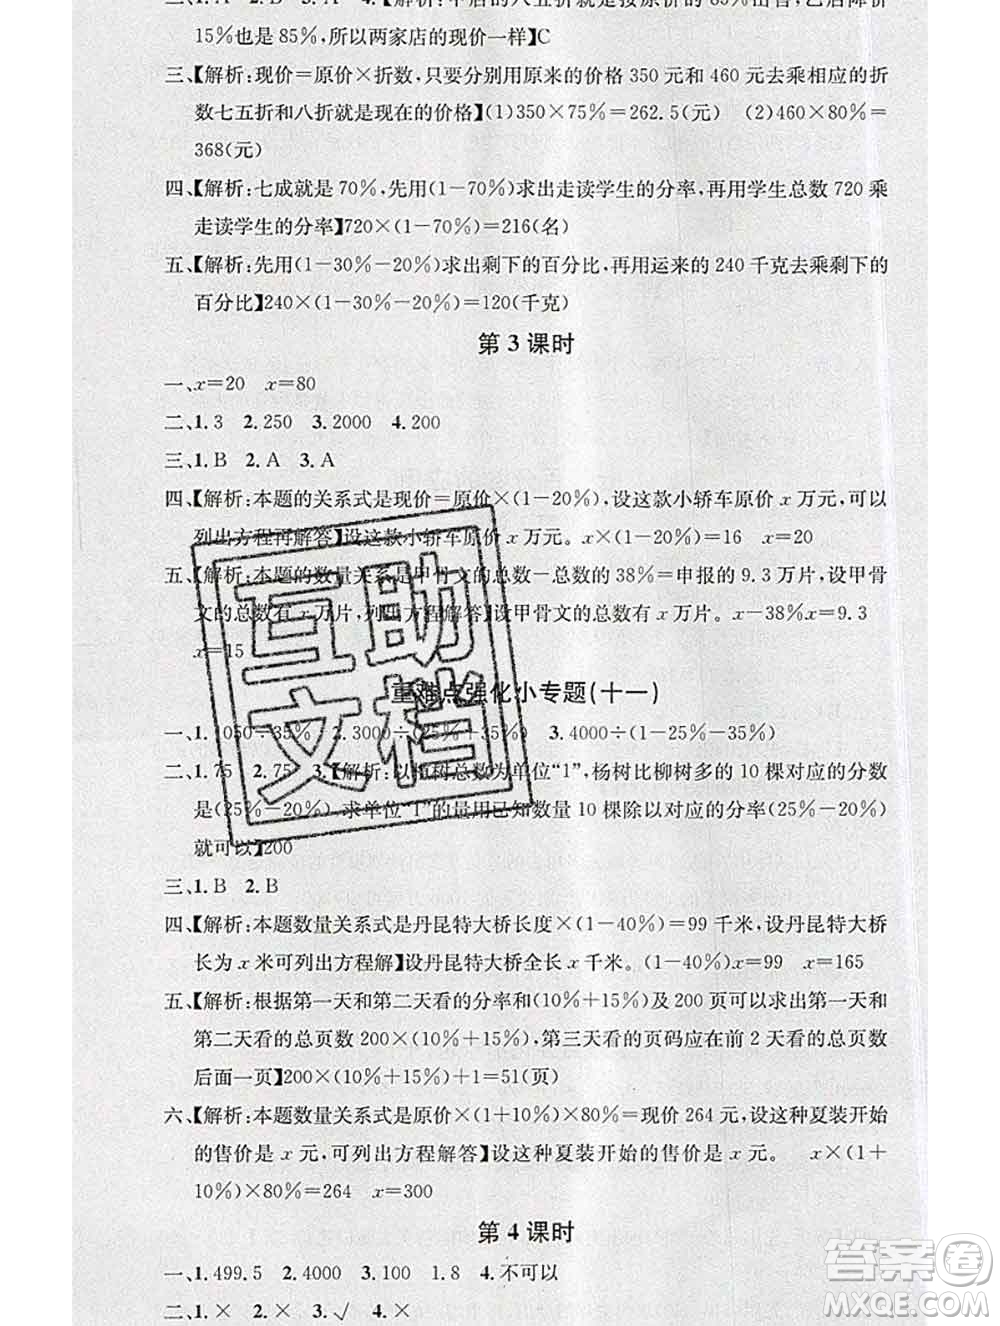 二、1.A 2.A 3.A 4.【解析:甲店的八五折就是按原价的85%出售,乙店降价
15%也是85%,所以两家店的现价一样】C
三、【解析:现价=原价×折数,只要分别用原来的价格350元和460元去乘相应的折
数七五折和八折就是现在的价格】(1)350×75%=262.5(元) (2)460×80%=
368(元)
四、【解析:七成就是70%,先用(1-70%)求出走读学生的分率,再用学生总数720乘
走读学生的分率】720×(1-70%)=216(名)
五、【解析:先用(1-30%-20%)求出剩下的百分比,再用运来的240千克去乘剩下的
百分比】240×(1-30%-20%)=120(千克)
第3课时
一、x=20 x=80
二、1.3 2.250 3.2000 4.200
三、1.B 2.A 3.A
四、【解析:本题的关系式是现价=原价×(1-20%),设这款小轿车原价x万元,可以
列出方程再解答】设这款小轿车原价x万元。x×(1-20%)=16 x=20
五、【解析:本题的数量关系是甲骨文的总数-总数的38%=申报的9.3万片,设甲骨
文的总数有x万片,列出方程解答】设甲骨文的总数有x万片。x-38%x=9.3
x=15
重难点强化小专题(十一)
一、1.1050÷35% 2.3000÷(25%+35%) 3.4000÷(1-25%-35%)
二、1.75 2.75 3.【解析:以植树总数为单位“1”,杨树比柳树多的10棵对应的分数
是(25%-20%),求单位“1”的量用已知数量10棵除以对应的分率(25%-20%)
就可以】200
三、1.B 2.B
四、【解析:本题数量关系式是丹昆特大桥长度×(1-40%)=99千米,设丹昆特大桥
长为x米可列出方程解】设丹昆特大桥全长x千米。(1-40%)x=99 x=165
五、【解析:根据第一天和第二天看的分率和(10%+15%)及200页可以求出第一天和
第二天看的总页数200×(10%+15%),第三天看的页码应在前2天看的总页数
后面一页】200×(10%+15%)+1=51(页)
六、【解析:本题数量关系式是原价×(1+10%)×80%=现价264元,设这种夏装开始
的售价是x元,可列出方程解答】设这种夏装开始的售价是x元。 x×(1+
10%)×80%=264 x=300
第4课时
一、1.499.5 2.4000 3.800 1.8 4.不可以
二、1.× 2.× 3.√ 4.×
互助
文档
答案圈
MXQE.COM